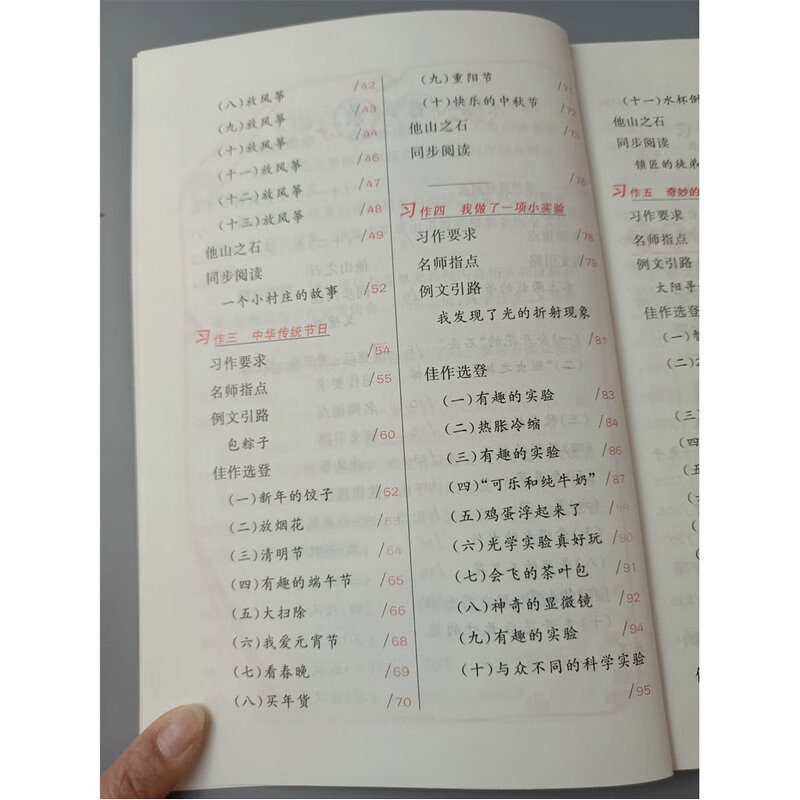 (八)放风筝 /42
(九)放风筝 /43
(十)放风筝 /44
(十一)放风筝 /46
(十二)放风筝 /47
(十三)放风筝 /48
他山之石 /49
同步阅读
一个小村庄的故事 /52
习作三 中华传统节日
习作要求 /54
名师指点 /55
例文引路
包粽子 /60
佳作选登
(一)新年的饺子 /62
(二)放烟花 /63
(三)清明节 /64
(四)有趣的端午节 /65
(五)大扫除 /66
(六)我爱元宵节 /68
(七)看春晚 /69
(八)买年货 /70
(九)重阳节 /71
(十)快乐的中秋节 /72
他山之石 /73
同步阅读
/76
习作四 我做了一项小实验
习作要求 /78
名师指点 /79
例文引路
我发现了光的折射现象
/81
佳作选登
(一)有趣的实验 /83
(二)热胀冷缩 /84
(三)有趣的实验 /86
(四)“可乐和纯牛奶” /87
(五)鸡蛋浮起来了 /89
(六)光学实验真好玩 /90
(七)会飞的茶叶包 /91
(八)神奇的显微镜 /92
(九)有趣的实验 /94
(十)与众不同的科学实验
/95
(十一)水杯倒
他山之石
同步阅读
镇匠的徒弟
习作五 奇妙的
习作要求
名师指点
例文引路
太阳寻
佳作选登
(一)
(二)
(三)
(四)
(五)
(六)
(七)
(八)